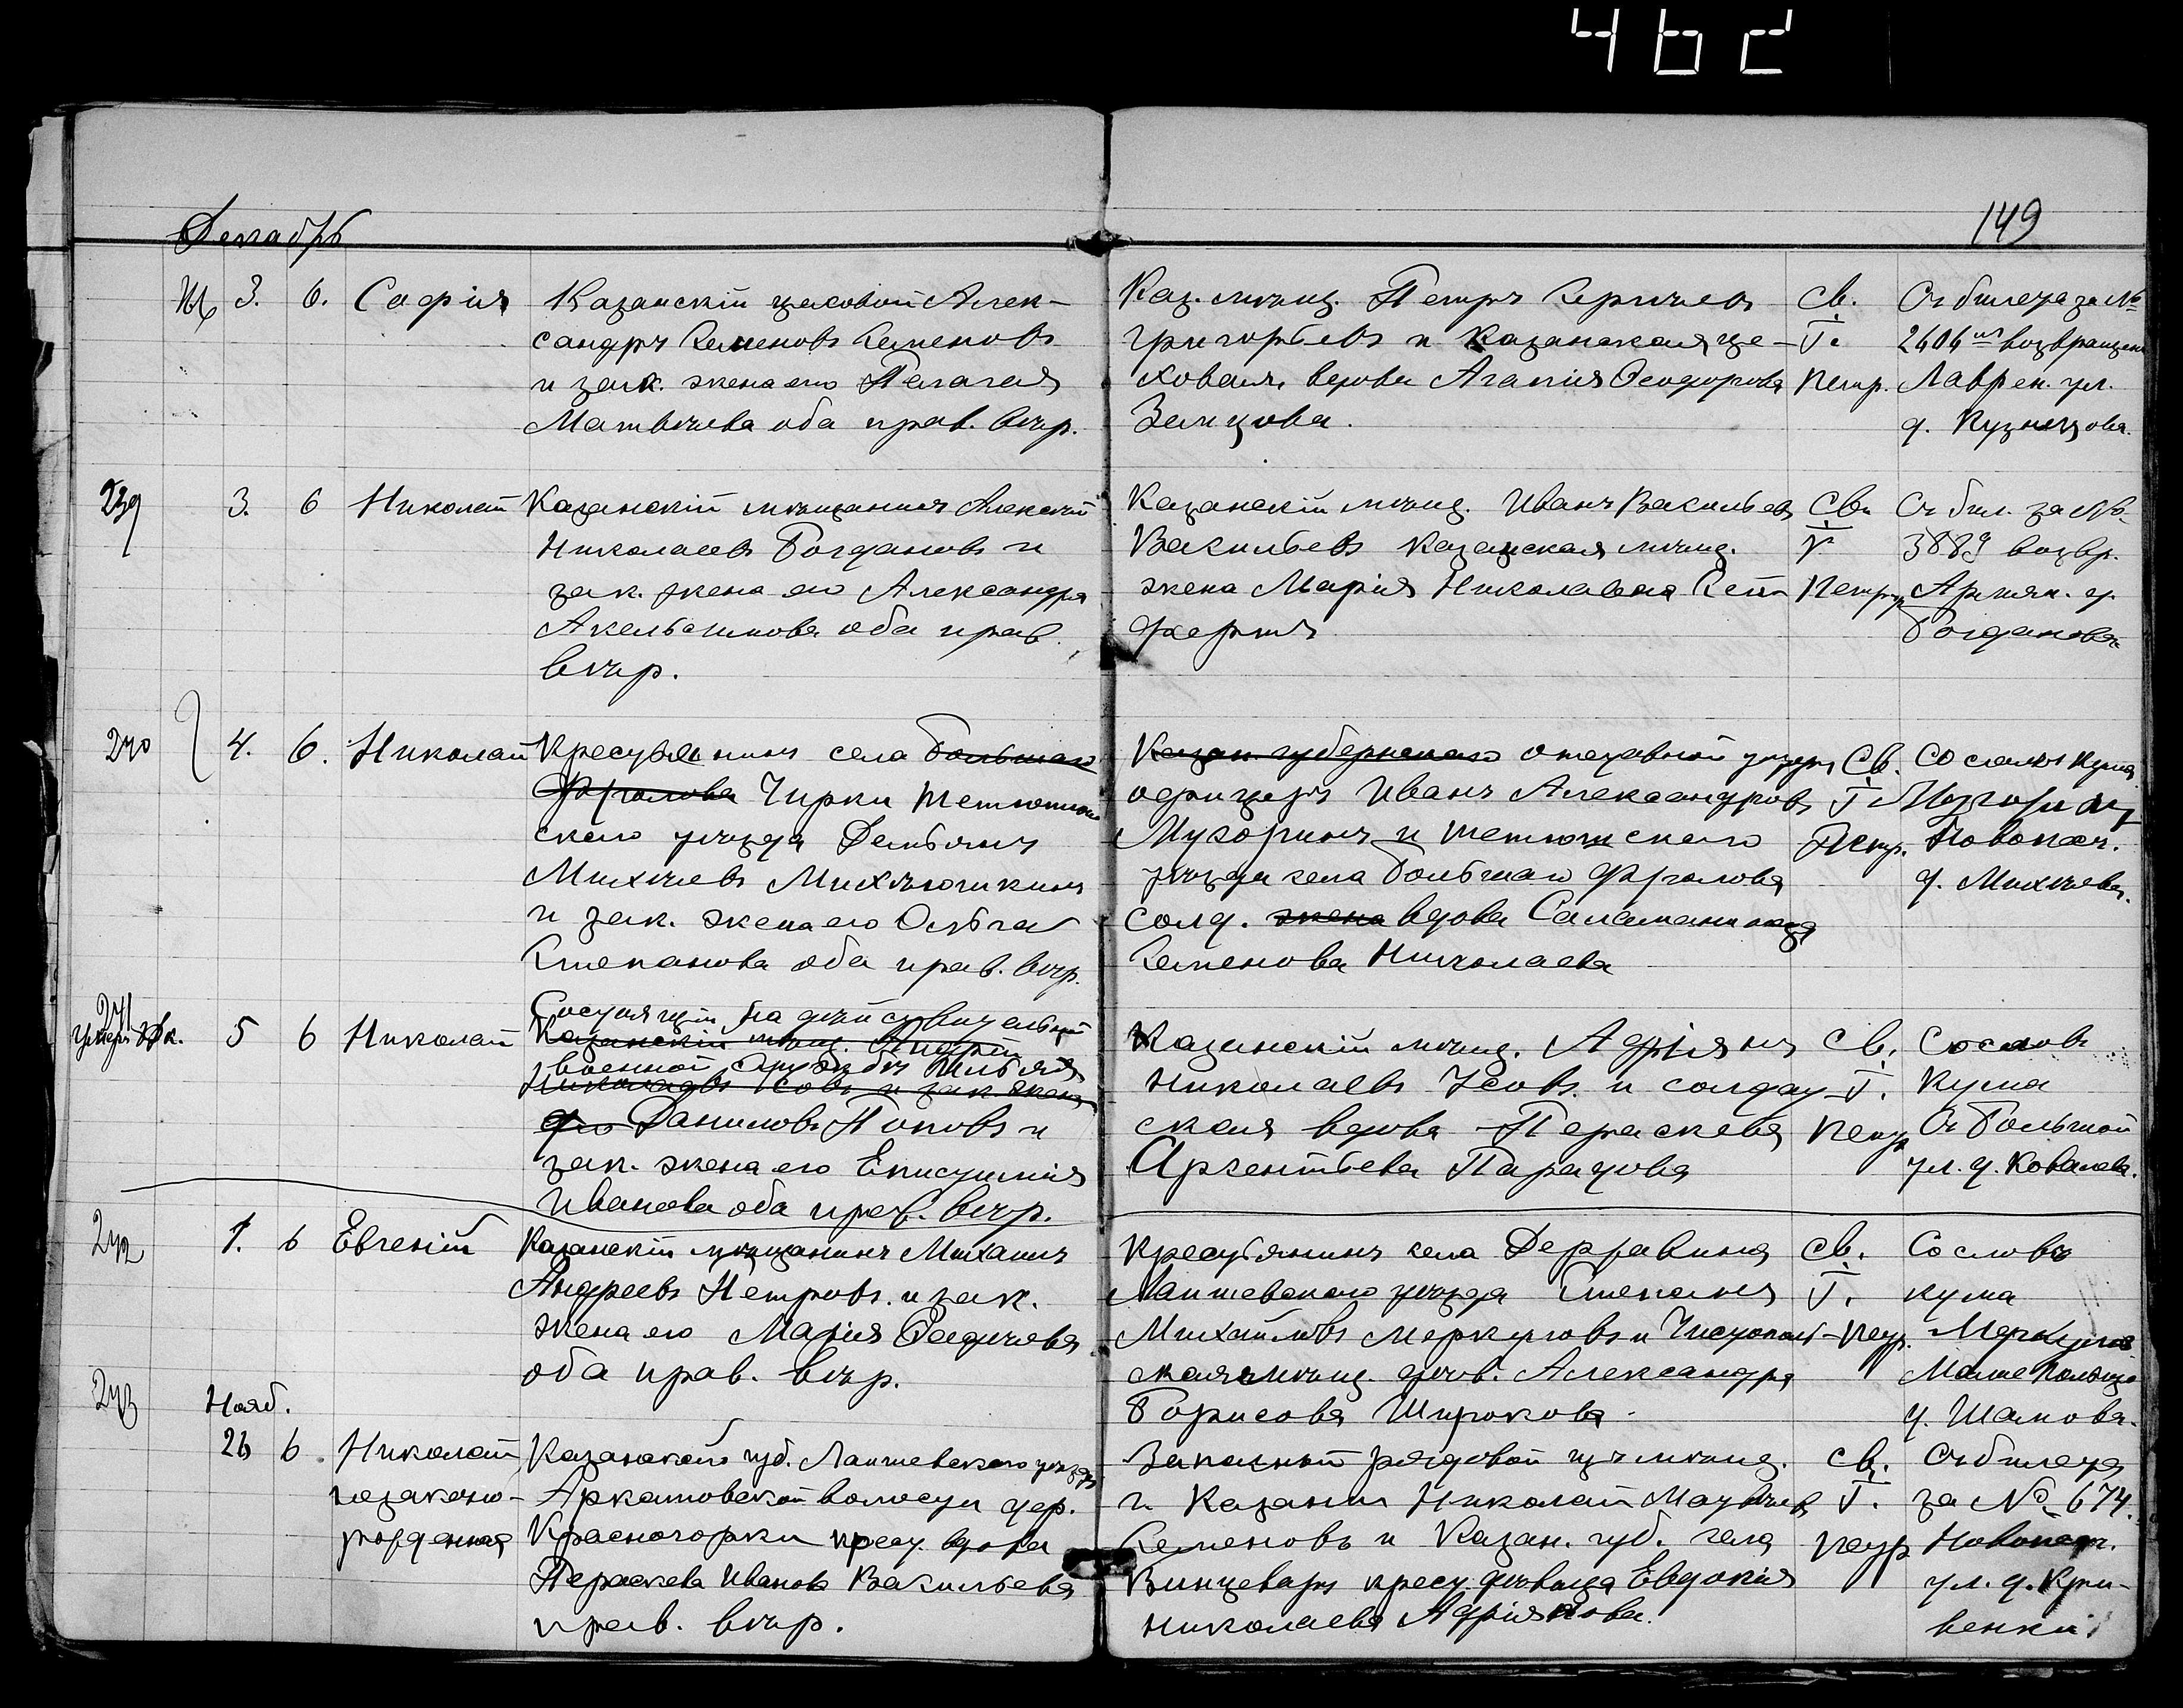 462
149
Декабрь
3. 6. Софія
Казанскій цеховой Алек-
сандръ Семеновъ Семеновъ
и зак. жена его Пелагея
Матвѣева оба прав. вѣр.
Каз. мѣщ. Петръ Сергѣевъ
Григорьевъ и Казанская це-
ховая, вдова Агапія Ѳеодорова
Замцова.
Св.
Т.
Петр.
Съ билета за №
2606 возвращен
Лаврен. ул.
д. Кузнецова.
239 3. 6 Николай
Казанскій мѣщанинъ Алексѣй
Николаевъ Богдановъ и
зак. жена его Александра
Акельсинова оба прав.
вѣр.
Казанскій мѣщ. Иванъ Васильевъ
Васильевъ Казанская мѣщ.
жена Марія Николаевна Сей-
фертъ
Св.
Т
Петр
Съ бил. за №
3889 возвр.
Армян. д.
Богданова
240 4. 6. Николай
Крестьянинъ села Большаго
Фролова Чирки Тетюш
скаго уѣзда Демьянъ
Михѣевъ Михѣюшкинъ
и зак. жена его Ольга
Степанова оба прав. вѣр.
Казан. губернскаго отставной унтеръ
офицеръ Иванъ Александровъ
Мухоринъ и Тетюшскаго
уѣзда села Большаго Фролова
солд. жена вдова Саламанида
Семенова Николаева
Св.
Т
Петр.
Со словъ кума
Мухорин
Новопол.
д. Михѣева.
241
умеръ 5 6 Николай
Состоящій на дѣйствительной
Казанскій мѣщ. Андрей
военной службѣ Илья
Николаевъ Усовъ и зак. жена
его Даниловъ Поповъ и
зак. жена его Епистимія
Иванова оба прав. вѣр.
Казанскій мѣщ. Адріянъ
Николаевъ Усовъ и солдат-
ская вдова Параскева
Арсентьева Парацова
Св.
Т.
Петр
Со словъ
кума
Съ Большой
ул. д. Ковалева.
242 1. 6 Евгеній
Казанскій мѣщанинъ Михаилъ
Андреевъ Петровъ и зак.
жена его Марія Фадѣева
оба прав. вѣр.
Крестьянинъ села Державина
Лаишевскаго уѣзда Степанъ
Михайловъ Меркуловъ и Чистополь-
ская мѣщ. дѣв. Александра
Борисова Широкова
Св.
Т.
Петр.
Со словъ
кума
Меркулова
д. Шамова.
243
Нояб.
26 6. Николай
незаконо-
рожденная
Казанской губ. Лаишевскаго уѣзда
Аркатовской волости дер.
Красногорки крест. вдова
Параскева Иванова Васильева
прав. вѣр.
Запасный рядовой изъ мѣщ.
г. Казани Николай Матвѣевъ
Семеновъ и Казан. губ. села
крест. дѣвица Евдокія
Николаева Адріянова.
Св.
Т.
Петр
Съ билета
за № 674.
Новопол.
ул. д. Кри-
венки